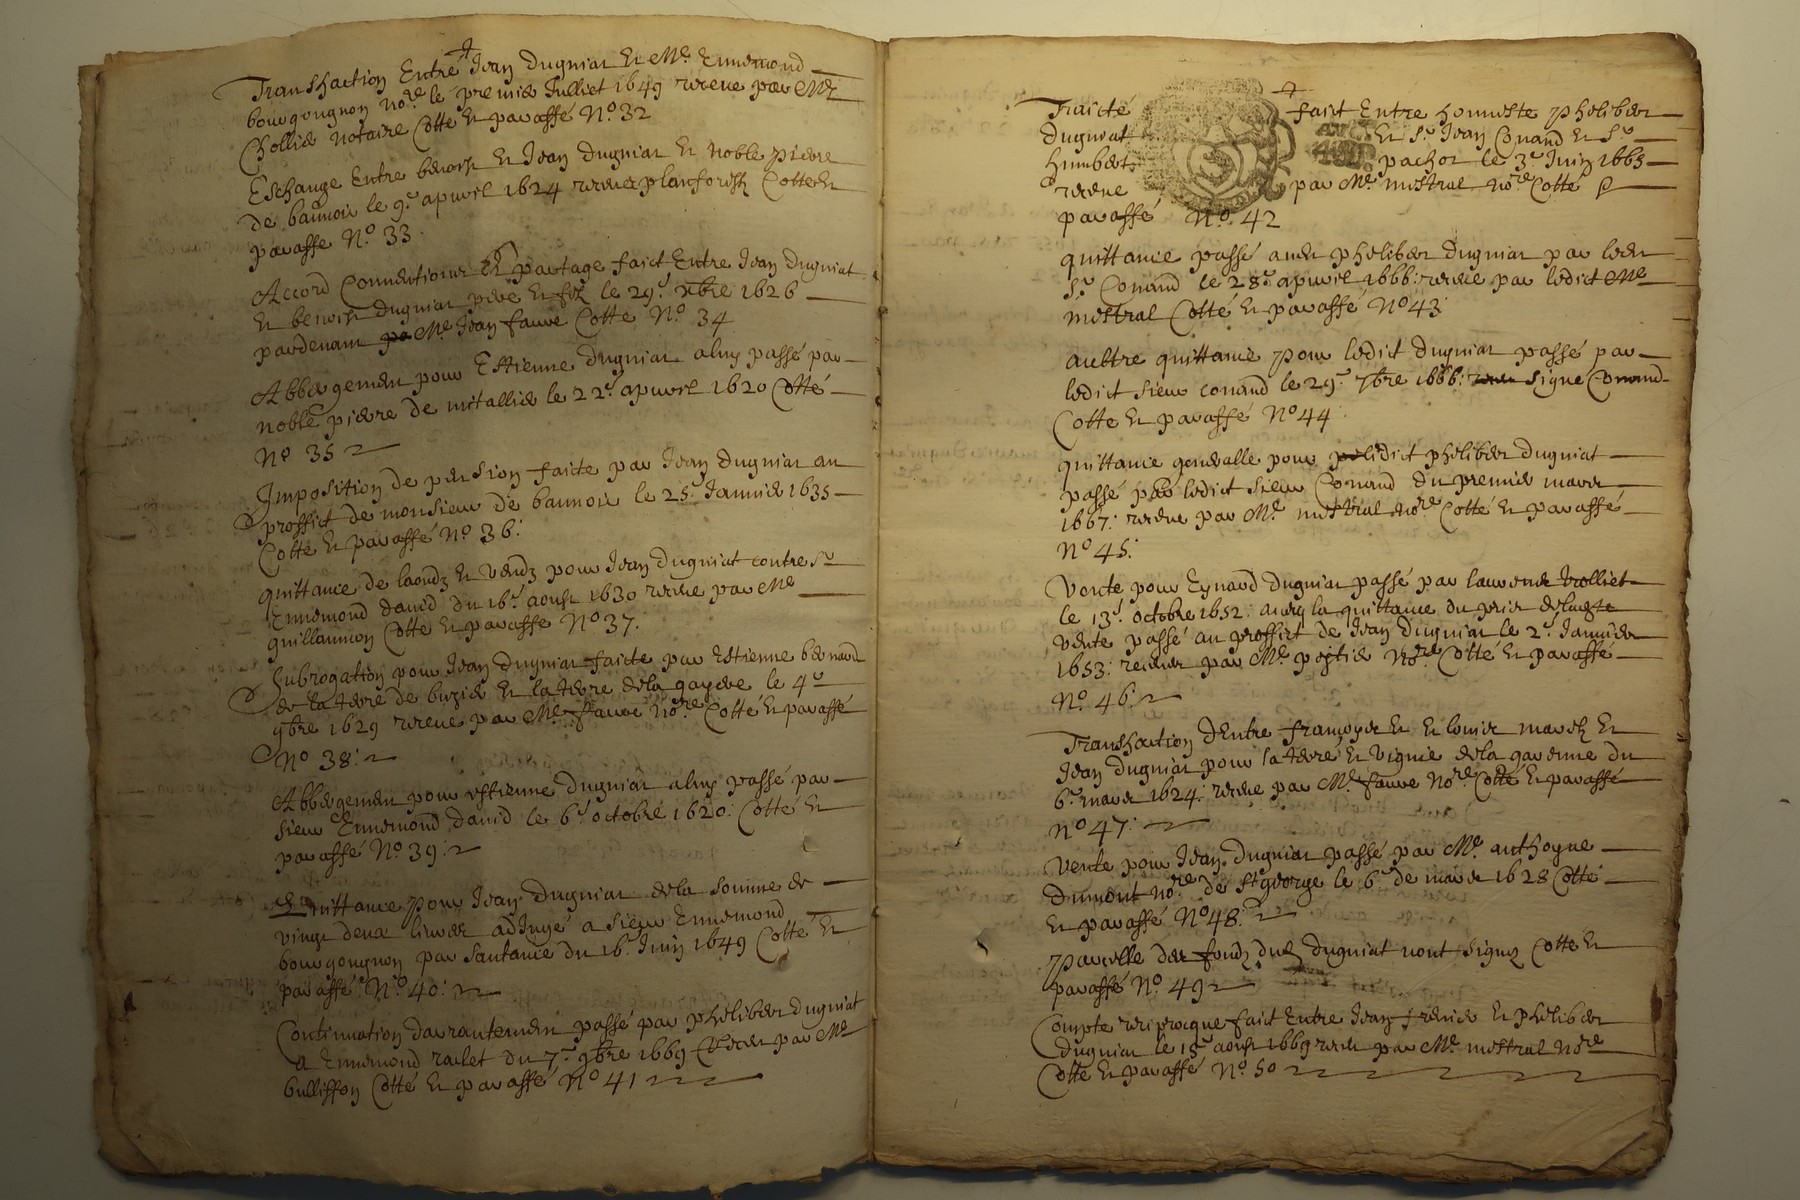 Transhaction Entre Jean Dugniat Et Me Ennemond
bourgougnon nore le premier Julliet 1649 receue par Me
Chollier notaire Cotté Et paraffé No 32
Eschange Entre benoist Et Jean Dugniat Et noble pierre
de bannoir le 9e apuvril 1624 receue planfordth Cotté Et
paraffe No 33
Accord Conuentionz Et partage faict Entre Jean Dugniat
Et benoist Dugniat pere Et filz le 29e xbre 1626
pardeuant Me Jean fauure Cotté No 34
Abbergement pour Estienne Dugniat a luy passé par
noble pierre de mitallier le 22e apuvril 1620 Cotté
No 35
Imposition de pension faicte par Jean Dugniat au
proffict de monsieur de bannoir le 25e Januier 1635
Cotté Et paraffé No 36:
quittance de laondz Et vendz pour Jean Dugniat contre Sr
Ennemond dauid du 16e aoust 1630 receue par Me
guillaumon Cotté Et paraffé No 37.
Subrogation pour Jean Dugniat faicte par Estienne bernard
de la terre de buzier Et la terre dela gayere le 4e
9bre 1629 receue par Me fauure Nore Cotté Et paraffé
No 38:
Abbergement pour estienne Dugniat a luy passé par
sieur Ennemond dauid le 6e octobre 1620: Cotté Et
paraffé No 39:
quittance pour Jean Dugniat dela somme de
vingt deux liures adjugé a sieur Ennemond
bourgougnon par santance du 16e Juin 1649 Cotté Et
paraffé No 40:
Continuation darrantement passé par phelibert Dugniat
a Ennemond raclet du 7e 9bre 1669 receue par Me
bulliffon Cotté Et paraffé No 41
Traicté faict Entre honneste phelibert
Dugniat Et Sr Jean Conand Et Sr
humbert pachot le 3e Juin 1665
receue par Me mistral nore Cotté Et
paraffé No 42
quittance passé audit phelibert Dugniat par ledit
Sr Conand le 28e apuvril 1666: receue par ledict Me
mistral Cotté Et paraffé No 43
aultre quittance pour ledict Dugniat passé par
ledict sieur conand le 29e 7bre 1666: signé Conand
Cotté Et paraffé No 44
quittance generalle pour ledict phelibert Dugniat
passé par ledict sieur Conand du premier mars
1667: receue par Me mistral nore Cotté Et paraffé
No 45:
Vente pour Eynard Dugniat passé par laurence Vrolliet
le 13e octobre 1652: auecq la quittance du prix delaqte
vente passé au proffict de Jean Dugniat le 2e Januier
1653: receues par Me pestier Nore Cotté Et paraffé
No 46
Transhaction dEntre francoyse Et Et louise march Et
Jean Dugniat pour la terre Et vignie dela garenne du
6e mars 1624: receue par Me fauure Nore Cotté Et paraffé
no 47:
Vente pour Jean Dugniat passé par Me anthoyne
Dumont nore de St george le 6e de mars 1628 Cotté
Et paraffé No 48:
parcelle des fondz dudz Dugniat nont signez Cotté Et
paraffé No 49
Compte reciprocque faict Entre Jean frenier Et phelibert
Dugniat le 15e aoust 1669 receu par Me mistral Nore
Cotté Et paraffé No 50